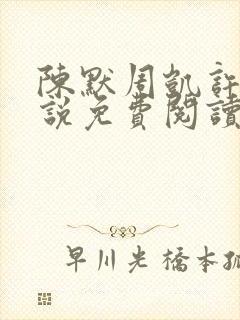 陳默周凱許
說免費閱讀
早川光橋本孤